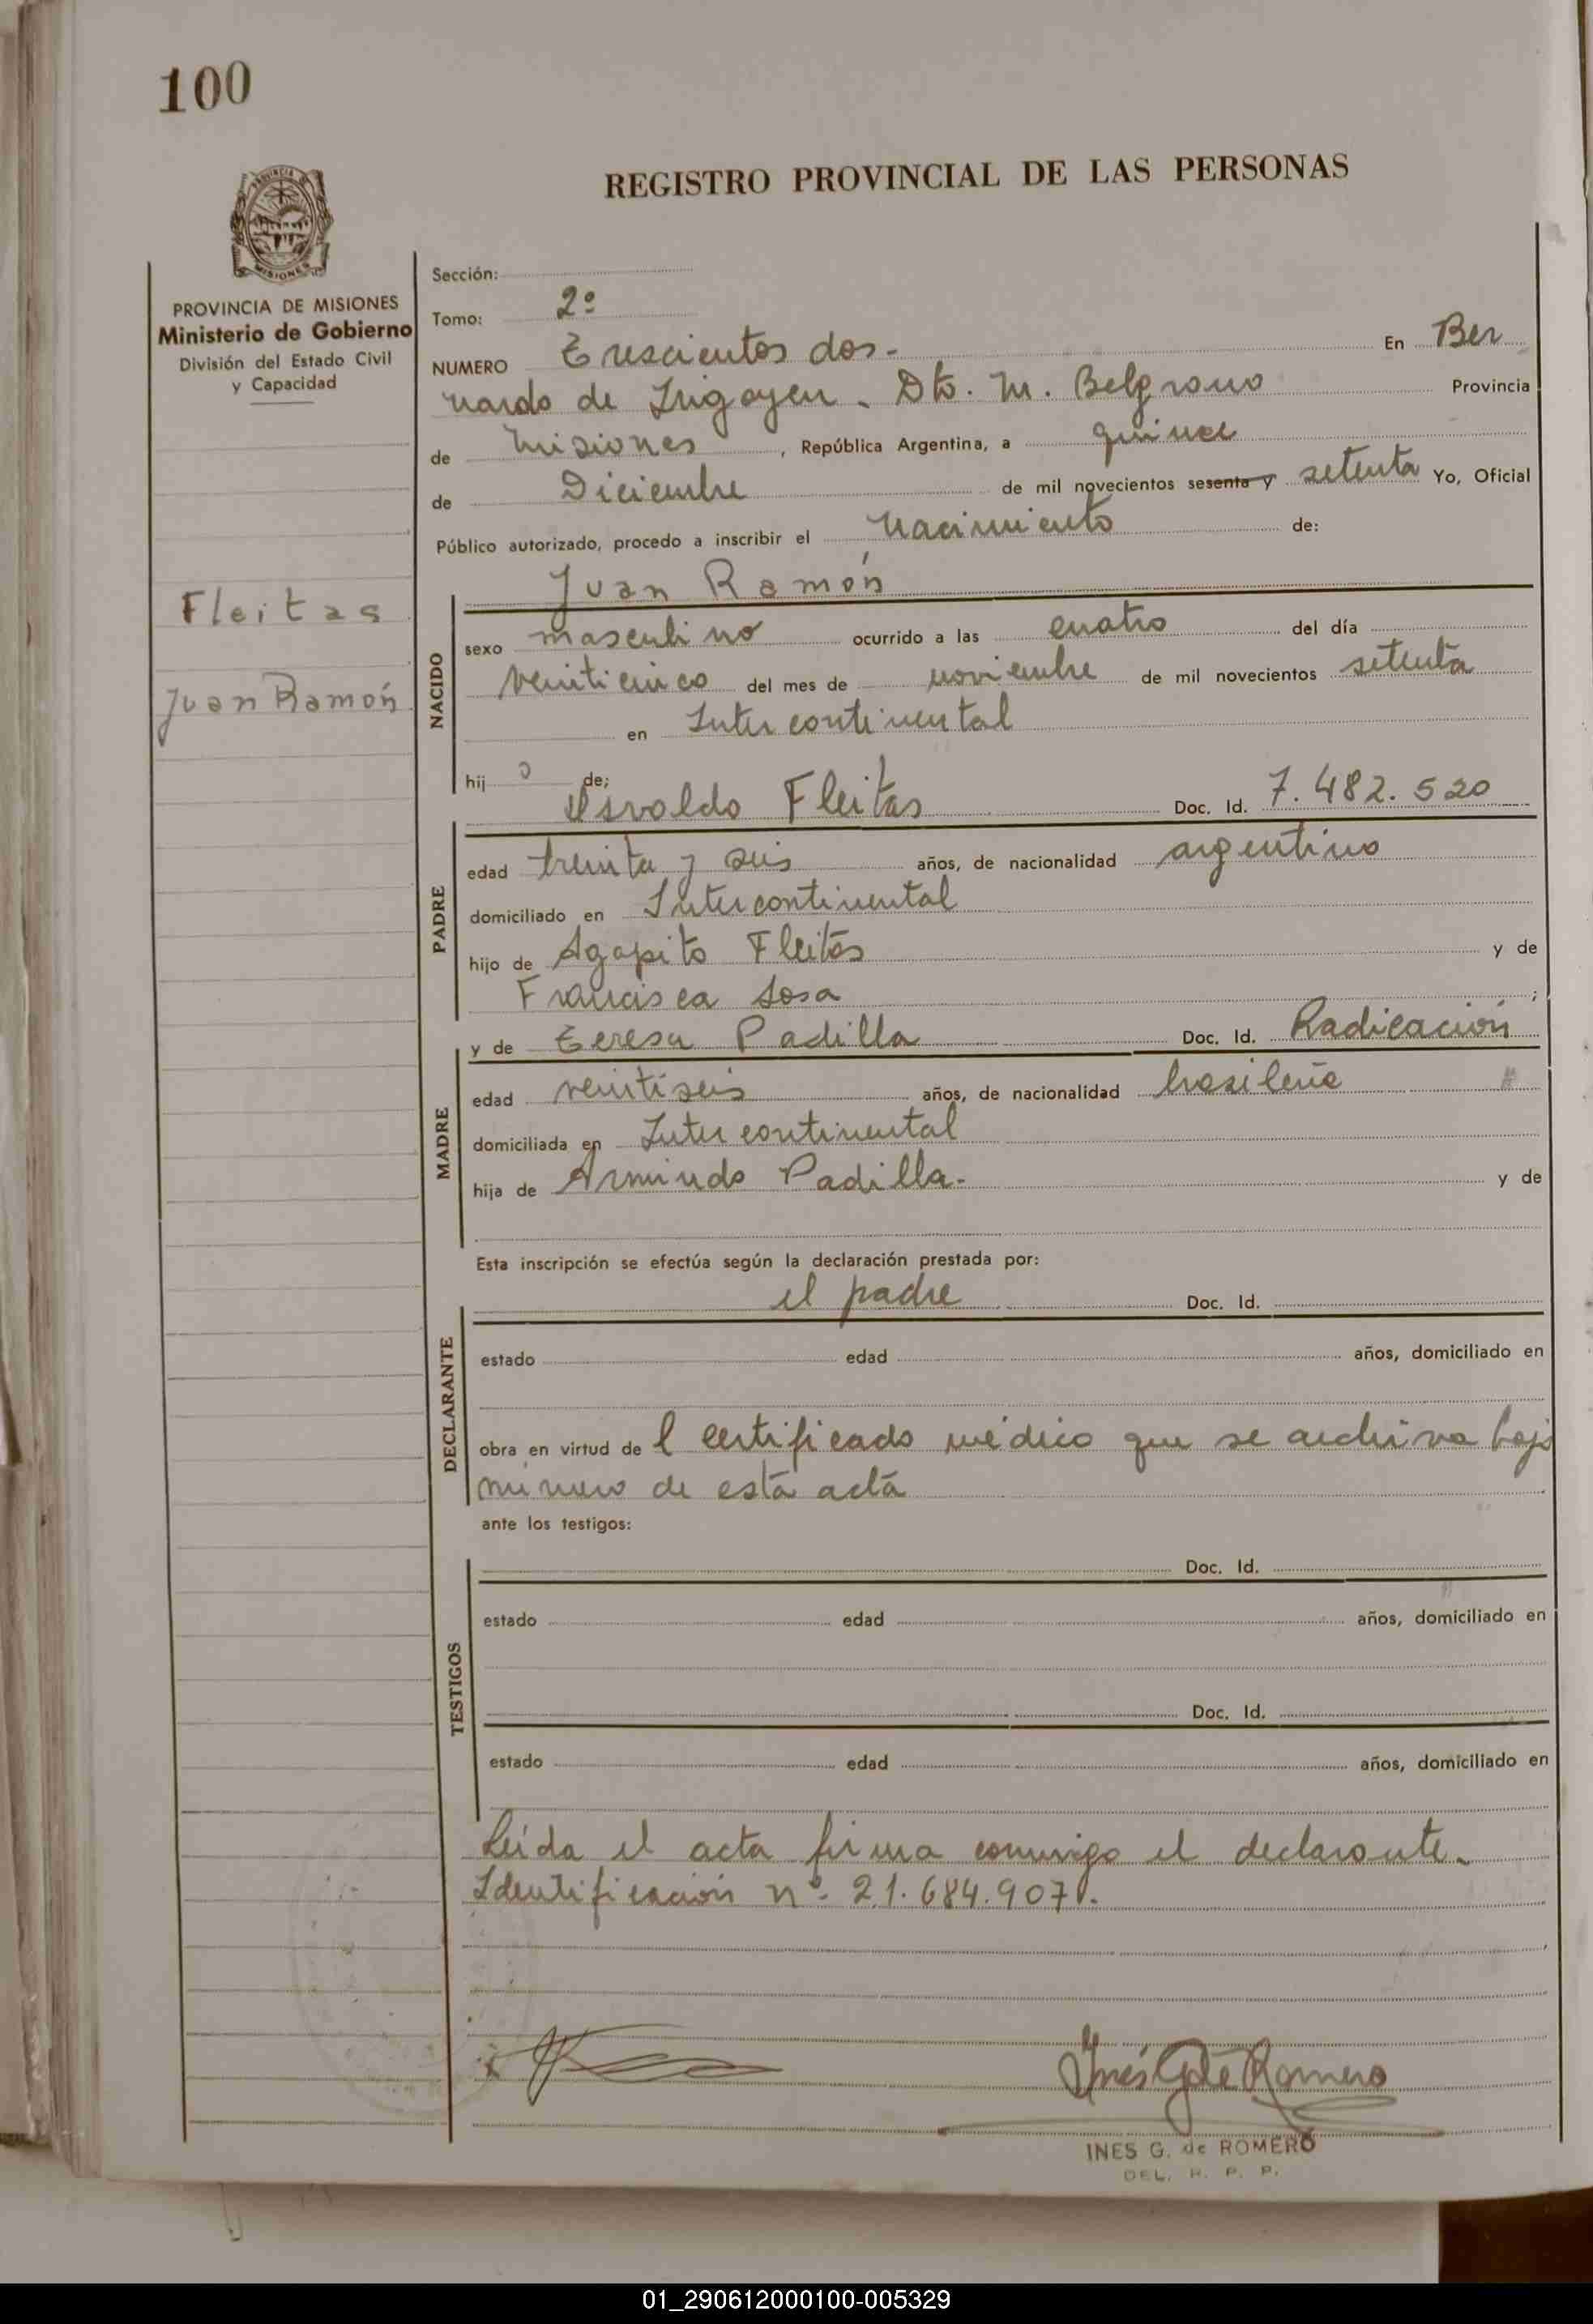 100
REGISTRO PROVINCIAL DE LAS PERSONAS
PROVINCIA DE MISIONES
Ministerio de Gobierno
División del Estado Civil
y Capacidad
Fleitas
Juan Ramón
Sección:
Tomo: 2º
NUMERO Trescientos dos- En Ber
nardo de Irigoyen - Dto. M. Belgrano Provincia
de Misiones, República Argentina, a quince
de Diciembre de mil novecientos sesenta y setenta Yo, Oficial
Público autorizado, procedo a inscribir el nacimiento de:
Juan Ramón
NACIDO
sexo masculino ocurrido a las cuatro del día
veinticinco del mes de noviembre de mil novecientos setenta
en Intercontinental
hijo de;
Osvaldo Fleitas Doc. Id. 7.482.520
PADRE
edad treinta y seis años, de nacionalidad argentino
domiciliado en Intercontinental
hijo de Agapito Fleitas y de
Francisca Sosa ;
y de Teresa Padilla Doc. Id. Radicación
MADRE
edad veintiseis años, de nacionalidad brasileña
domiciliada en Intercontinental
hija de Armindo Padilla- y de
Esta inscripción se efectúa según la declaración prestada por:
el padre Doc. Id.
DECLARANTE
estado edad años, domiciliado en
obra en virtud de l certificado médico que se archiva bajo
número de esta acta
ante los testigos:
Doc. Id.
TESTIGOS
estado edad años, domiciliado en
Doc. Id.
estado edad años, domiciliado en
Leída el acta firma conmigo el declarante-
Identificación nº 21.684.907.
Inés G de Romero
INES G. de ROMERO
DEL. R. P. P.
01_290612000100-005329